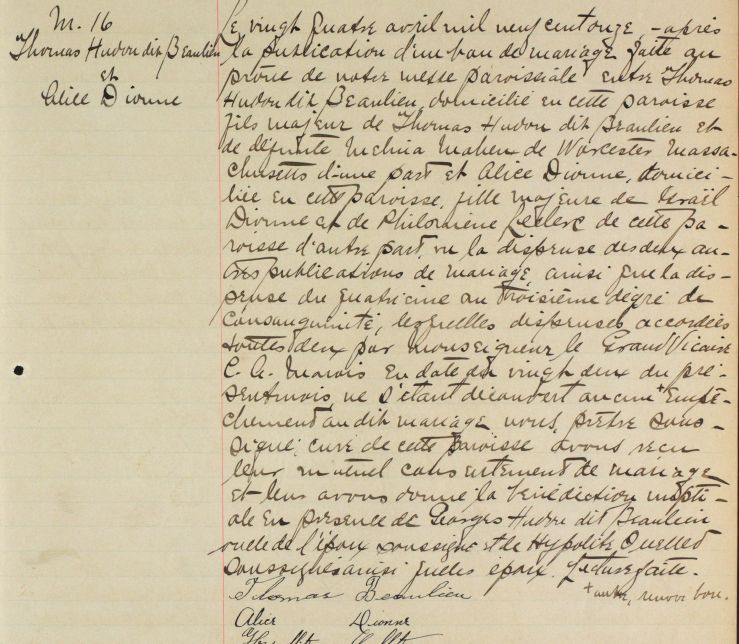 M. 16
Thomas Hudon dit Beaulieu
et
Alice Dionne
Le vingt quatre avril mil neuf cent onze, après
la publication d'un ban de mariage faite au
prône de notre messe paroissiale entre Thomas
Hudon dit Beaulieu, domicilié en cette paroisse
fils majeur de Thomas Hudon dit Beaulieu et
de défunte Maheu de Worcester Massa-
chusetts d'une part et Alice Dionne, domici-
liée en cette paroisse, fille majeure de Israël
Dionne et de Philomène Leclerc de cette pa-
roisse d'autre part, vu la dispense des deux au-
tres publications de mariage ainsi que la dis-
pense du quatrième au troisième degré de
consanguinité, lesquelles dispenses accordées
toutes deux par Monseigneur le Grand Vicaire
C. A. Marois en date du vingt deux du pré-
sent mois, ne s'étant découvert aucun + empê-
chement au dit mariage nous, prêtre sous-
signé, curé de cette paroisse avons reçu
leur mutuel consentement de mariage
et leur avons donné la bénédiction nupti-
ale en présence de Georges Hudon dit Beaulieu
oncle de l'époux soussigné et de Hypolite Ouellet
soussigné ainsi que les époux. Lecture faite.
+ autre, renvoi bon.
Thomas Beaulieu
Alice Dionne